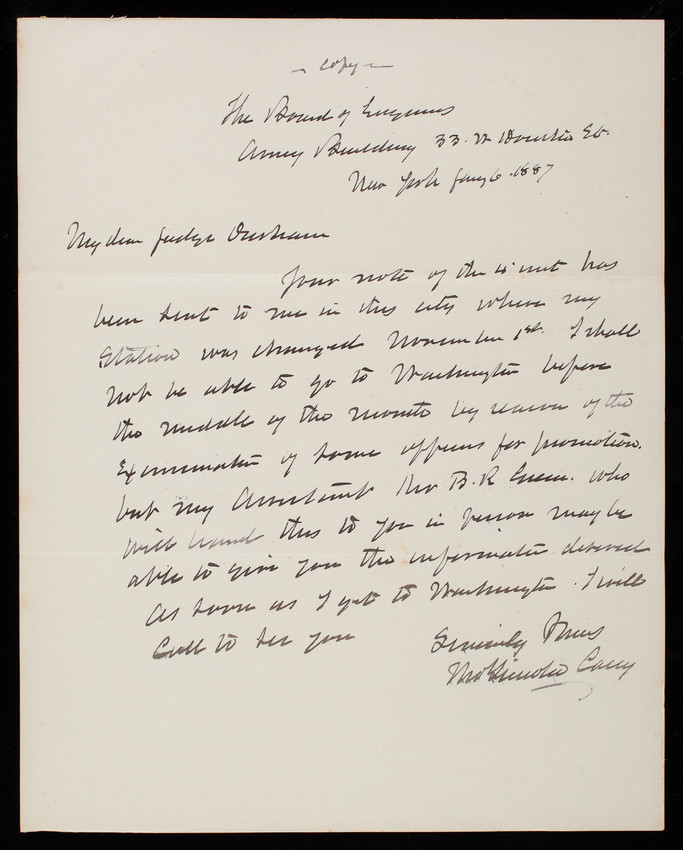 - Copy -
The Board of Engineers
Army Building 33. W Houston St.
New York Jany 6. 1887
My dear Judge Durham
Your note of the 4 inst has
been sent to me in this city where my
Station was changed November 1st. I shall
not be able to go to Washington before
the middle of the month by reason of the
Examination of some officers for promotion.
but my Assistant Mr B. R. Green. who
will hand this to you in person may be
able to give you the information desired
As soon as I get to Washington. I will
Call to see you
Sincerely Yours
Thos Lincoln Casey